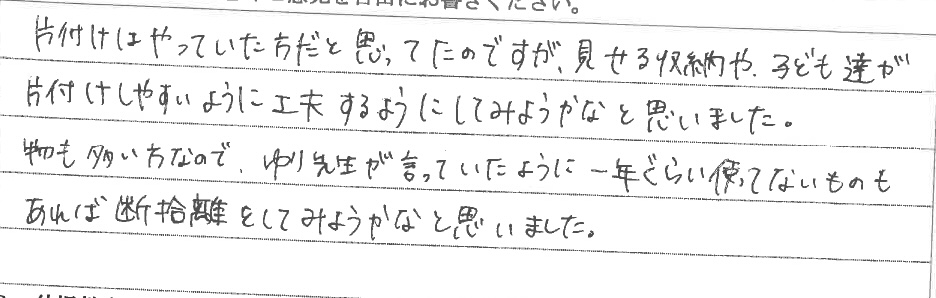 ご意見を自由にお書きください。
片付けはやっていた方だと思ってたのですが、見せる収納や、子ども達が
片付けしやすいように工夫するようにしてみようかなと思いました。
物も多い方なので、ゆり先生が言っていたように一年ぐらい使ってないものも
あれば断捨離をしてみようかなと思いました。